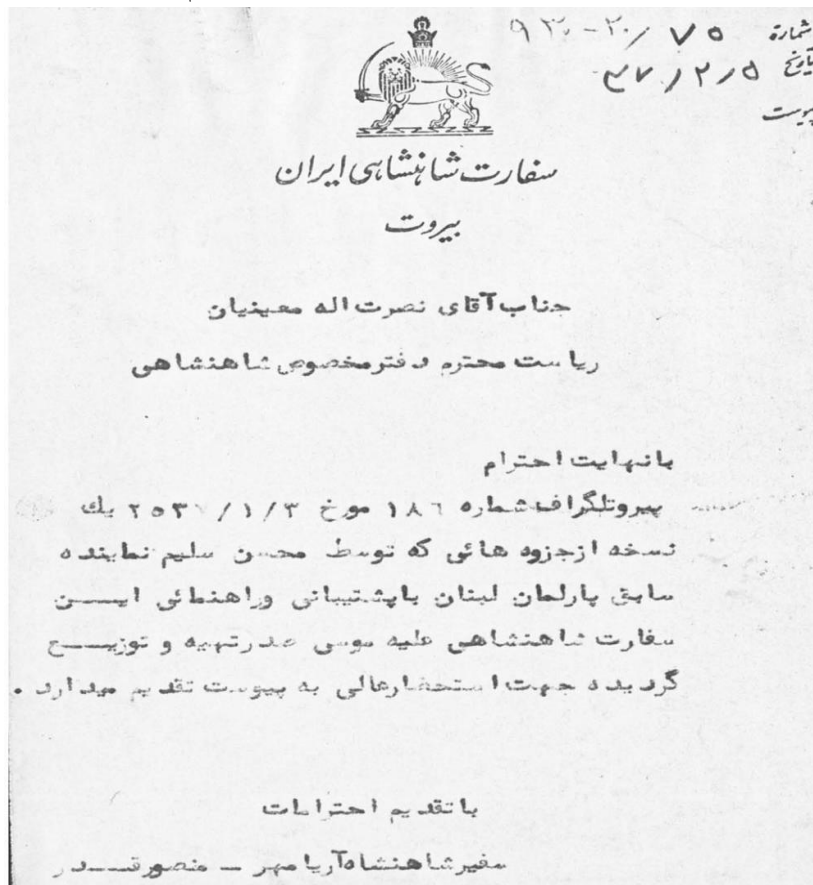 شماره ۷۵ / ۲۰ - ۹۳۰
تاریخ ۳۷/۲/۵
پیوست
سفارت شاهنشاهی ایران
بیروت
جناب آقای نصرت اله معینیان
ریاست محترم دفتر مخصوص شاهنشاهی
با نهایت احترام
پیرو تلگراف شماره ۱۸۶ مورخ ۲۵۳۷/۱/۳ یك
نسخه از جزوه هائی که توسط محسن سلیم نماینده
سابق پارلمان لبنان با پشتیبانی و راهنمائی ایـــن
سفارت شاهنشاهی علیه موسی صدر تهیه و توزیـــع
گردیده جهت استحضار عالی به پیوست تقدیم میدارد .
با تقدیم احترامات
سفیر شاهنشاه آریامهر ـ منصور قـــدر